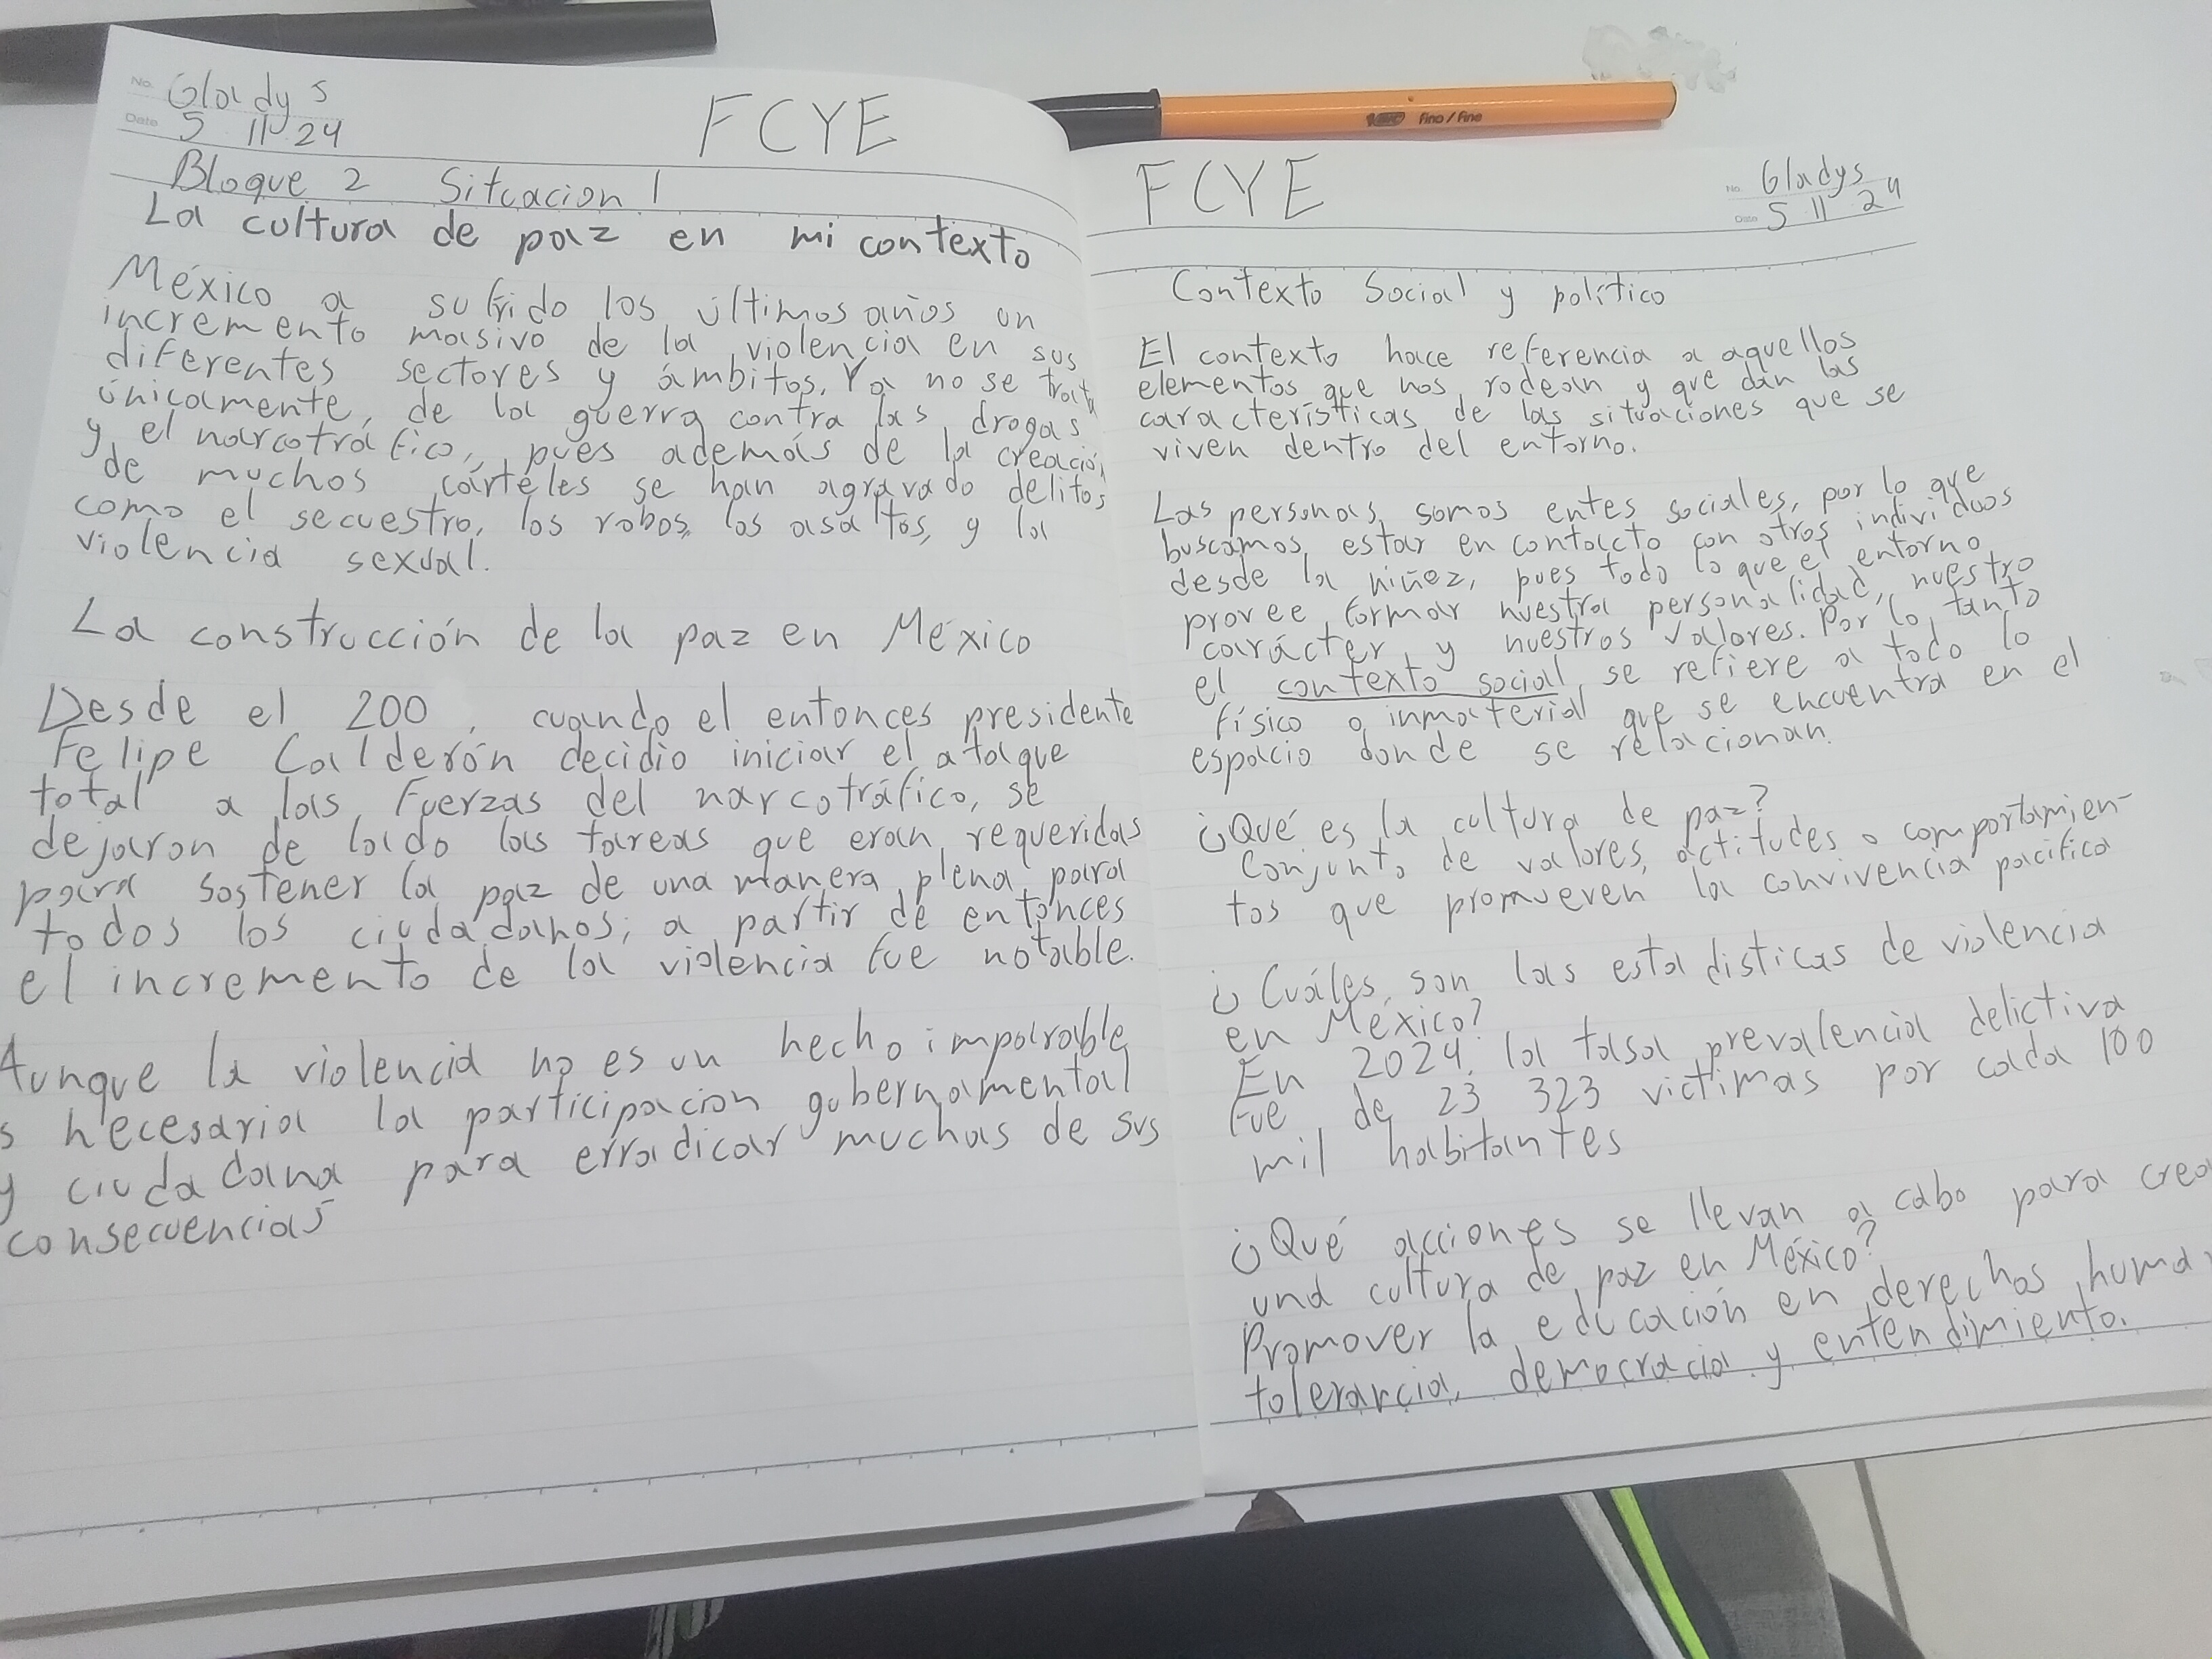 No. Gladys
Date 5 11 24
FCYE
Bloque 2 Situacion 1
La cultura de paz en mi contexto
México a sufrido los últimos años un
incremento masivo de la violencia en sus
diferentes sectores y ámbitos. Ya no se trata
únicamente, de la guerra contra las drogas
y el narcotráfico, pues además de la creación
de muchos cárteles se han agravado delitos
como el secuestro, los robos, los asaltos, y la
violencia sexual.
La construcción de la paz en México
Desde el 200 , cuando el entonces presidente
Felipe Calderón decidio iniciar el ataque
total a las fuerzas del narcotráfico, se
dejaron de lado las tareas que eran requeridas
para sostener la paz de una manera plena para
todos los ciudadanos; a partir de entonces
el incremento de la violencia fue notable.
Aunque la violencia no es un hecho imparable
s necesaria la participacion gubernamental
y ciudadana para erradicar muchas de sus
consecuencias
FCYE
No. Gladys
Date 5 11 24
Contexto Social y político
El contexto hace referencia a aquellos
elementos que nos rodean y que dan las
características de las situaciones que se
viven dentro del entorno.
Las personas somos entes sociales, por lo que
buscamos estar en contacto con otros individuos
desde la niñez, pues todo lo que el entorno
provee formar nuestra personalidad, nuestro
carácter y nuestros valores. Por lo tanto
el contexto social se refiere a todo lo
físico o inmaterial que se encuentra en el
espacio donde se relacionan.
¿Qué es la cultura de paz?
Conjunto de valores, actitudes o comportamien-
tos que promueven la convivencia pacifica
¿Cuáles son las estadisticas de violencia
en México?
En 2024, la tasa prevalencia delictiva
fue de 23 323 victimas por cada 100
mil habitantes
¿Qué acciones se llevan a cabo para crea
una cultura de paz en México?
Promover la educación en derechos huma
tolerancia, democracia y entendimiento.
BIC fino/fine